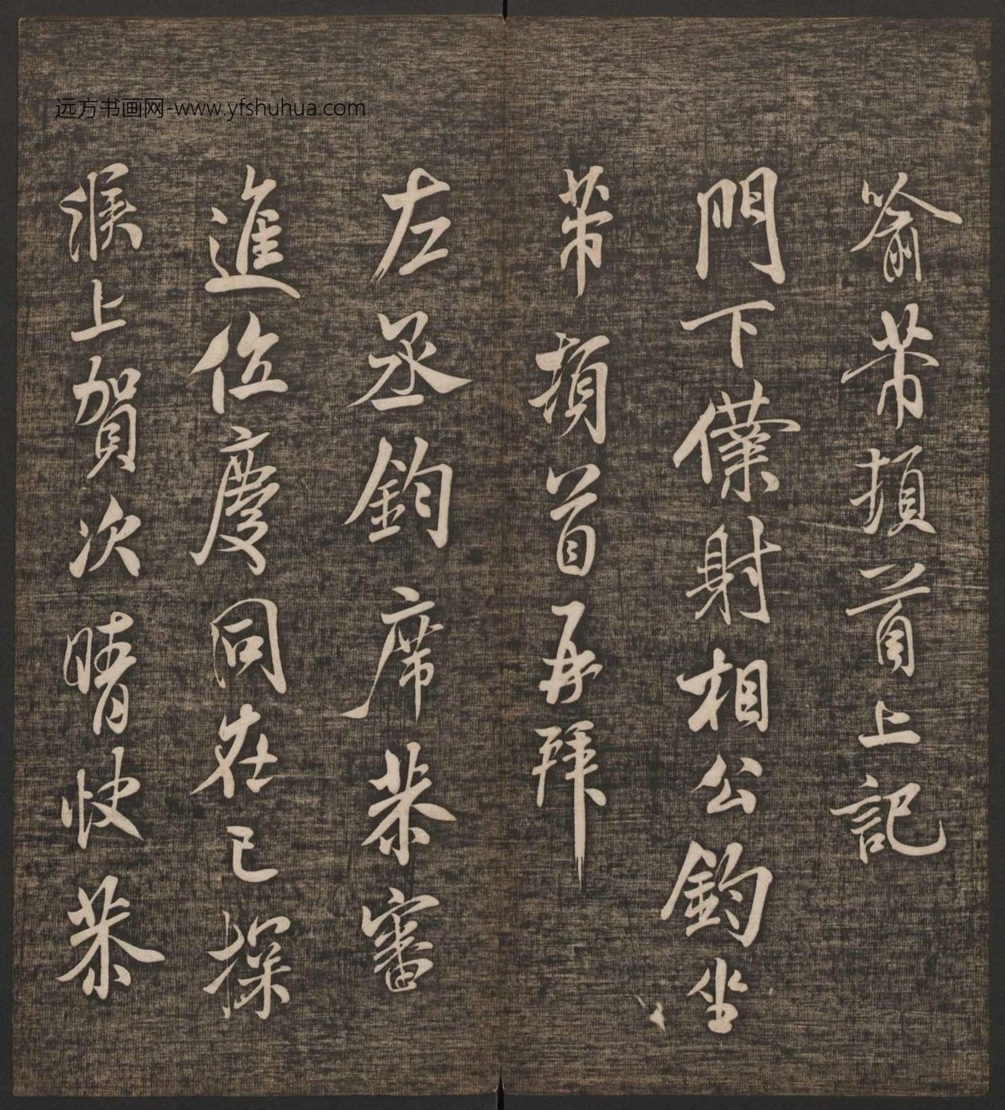 远方书画网-www.yfshuhua.com
喻芾頓首上記
門下僕射相公鈞坐
芾頓首再拜
左丞鈞席恭審
進位慶同在已探
候上賀次晴快恭